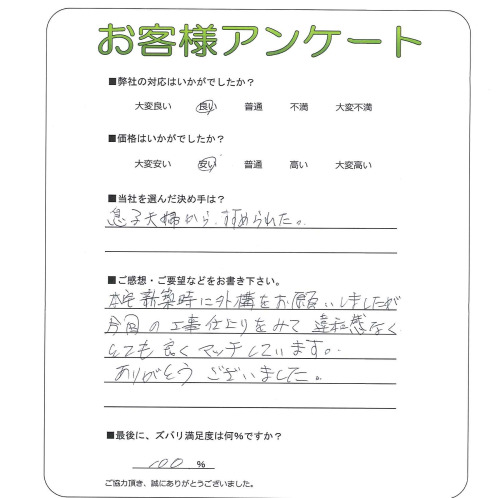 お客様アンケート
■弊社の対応はいかがでしたか？
大変良い 良い 普通 不満 大変不満
■価格はいかがでしたか？
大変安い 安い 普通 高い 大変高い
■当社を選んだ決め手は？
息子夫婦から、すすめられた。
■ご感想・ご要望などをお書き下さい。
本宅新築時に外構をお願いしましたが
今回の工事仕上りをみて違和感なく
とても良くマッチしています。
ありがとうございました。
■最後に、ズバリ満足度は何%ですか？
100 %
ご協力頂き、誠にありがとうございました。